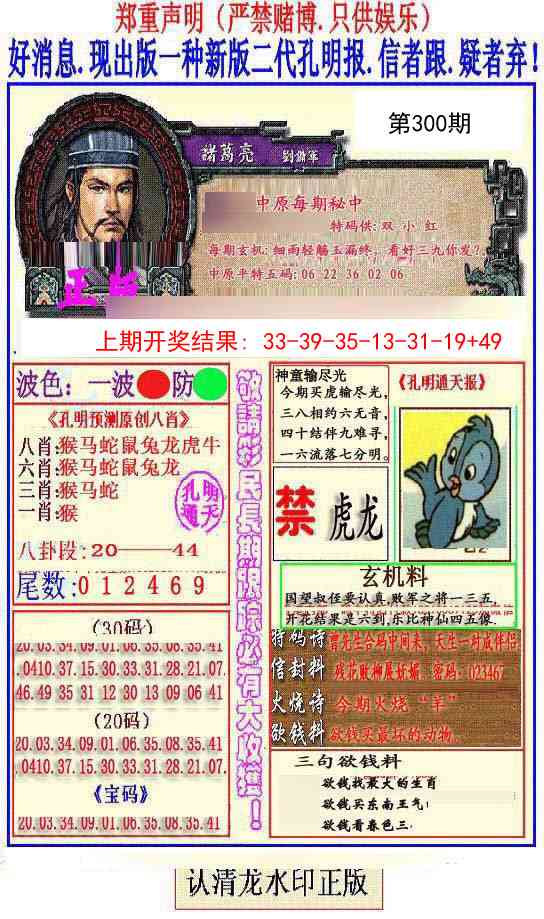 郑重声明（严禁赌博.只供娱乐）
好消息.现出版一种新版二代孔明报.信者跟.疑者弃!
第300期
諸葛亮 劉備軍
中原每期秘中
特码供:双 小 红
每期玄机:细雨轻觞玉漏终, 看好三九你发?
中原平特五码:06 22 36 02 06
正版
上期开奖结果: 33-39-35-13-31-19+49
波色: 一波 防
《孔明预测原创八肖》
八肖:猴马蛇鼠兔龙虎牛
六肖:猴马蛇鼠兔龙
三肖:猴马蛇
一肖:猴
孔明
通天
八卦段:20——44
尾数:0 1 2 4 6 9
(30码)
20.03.34.09.01.06.35.08.35.41
.0410.37.15.30.33.31.28.21.07.
46.49.35 31 12 30 13 09 06 41
(20码)
20.03.34.09.01.06.35.08.35.41
.0410.37.15.30.33.31.28.21.07.
《宝码》
20.03.34.09.01.06.35.08.35.41
敬請彩民長期跟踪必有大收獲！
神童输尽光
今期买虎输尽光,
三八相约六无音,
四十结伴九难寻,
一六流落七分明。
《孔明通天报》
禁 虎龙
玄机料
国望叔侄要认真,败军之将一三五,
开花结果是六到,东比神仙四五像.
特码诗 曾先生合码中间来, 天生一对成伴侣
信封料 残花败柳展妖媚, 密码: 023467
火烧诗 今期火烧“羊”
欲钱料 欲钱买最坏的动物.
三句欲钱料
欲钱找最大的生肖
欲钱买东南王气;
欲钱看春色三:
认清龙水印正版